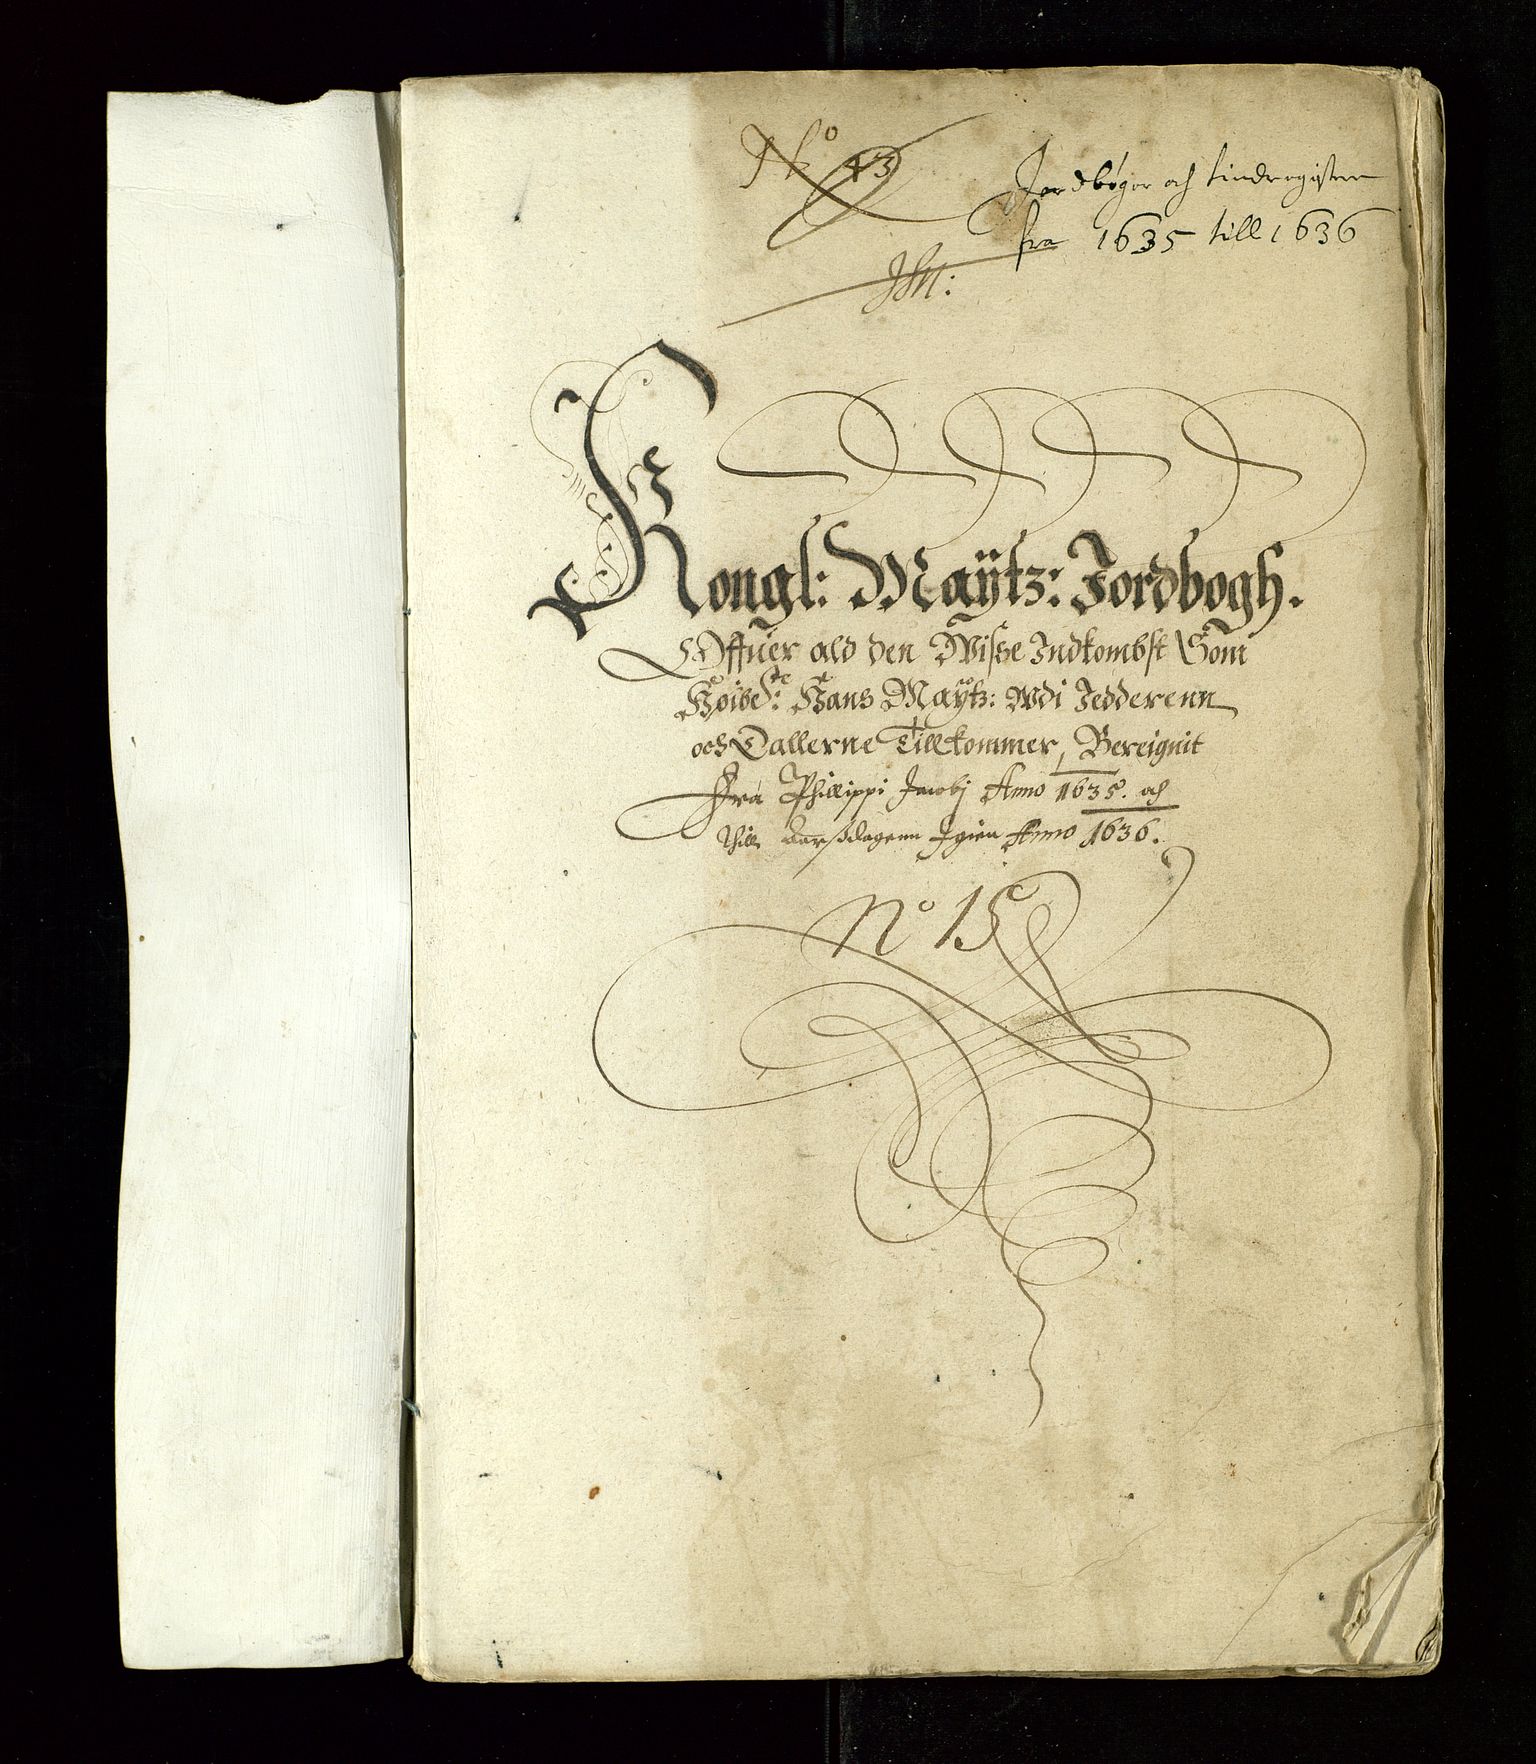 No 13
Jordbøger och tiendregister
fra 1635 till 1636
Kongl: Maÿtz: Jordbogh.
Offuer ald den Wisse Indkombst Som
Høibe: Hans Maÿtz: Udi Jedderenn
och Dallerne Tillkommer, Bereignit
Fra Phillippi Jacobj Anno 1635. och
thill Aarßdagenn Igien Anno 1636.
No 15